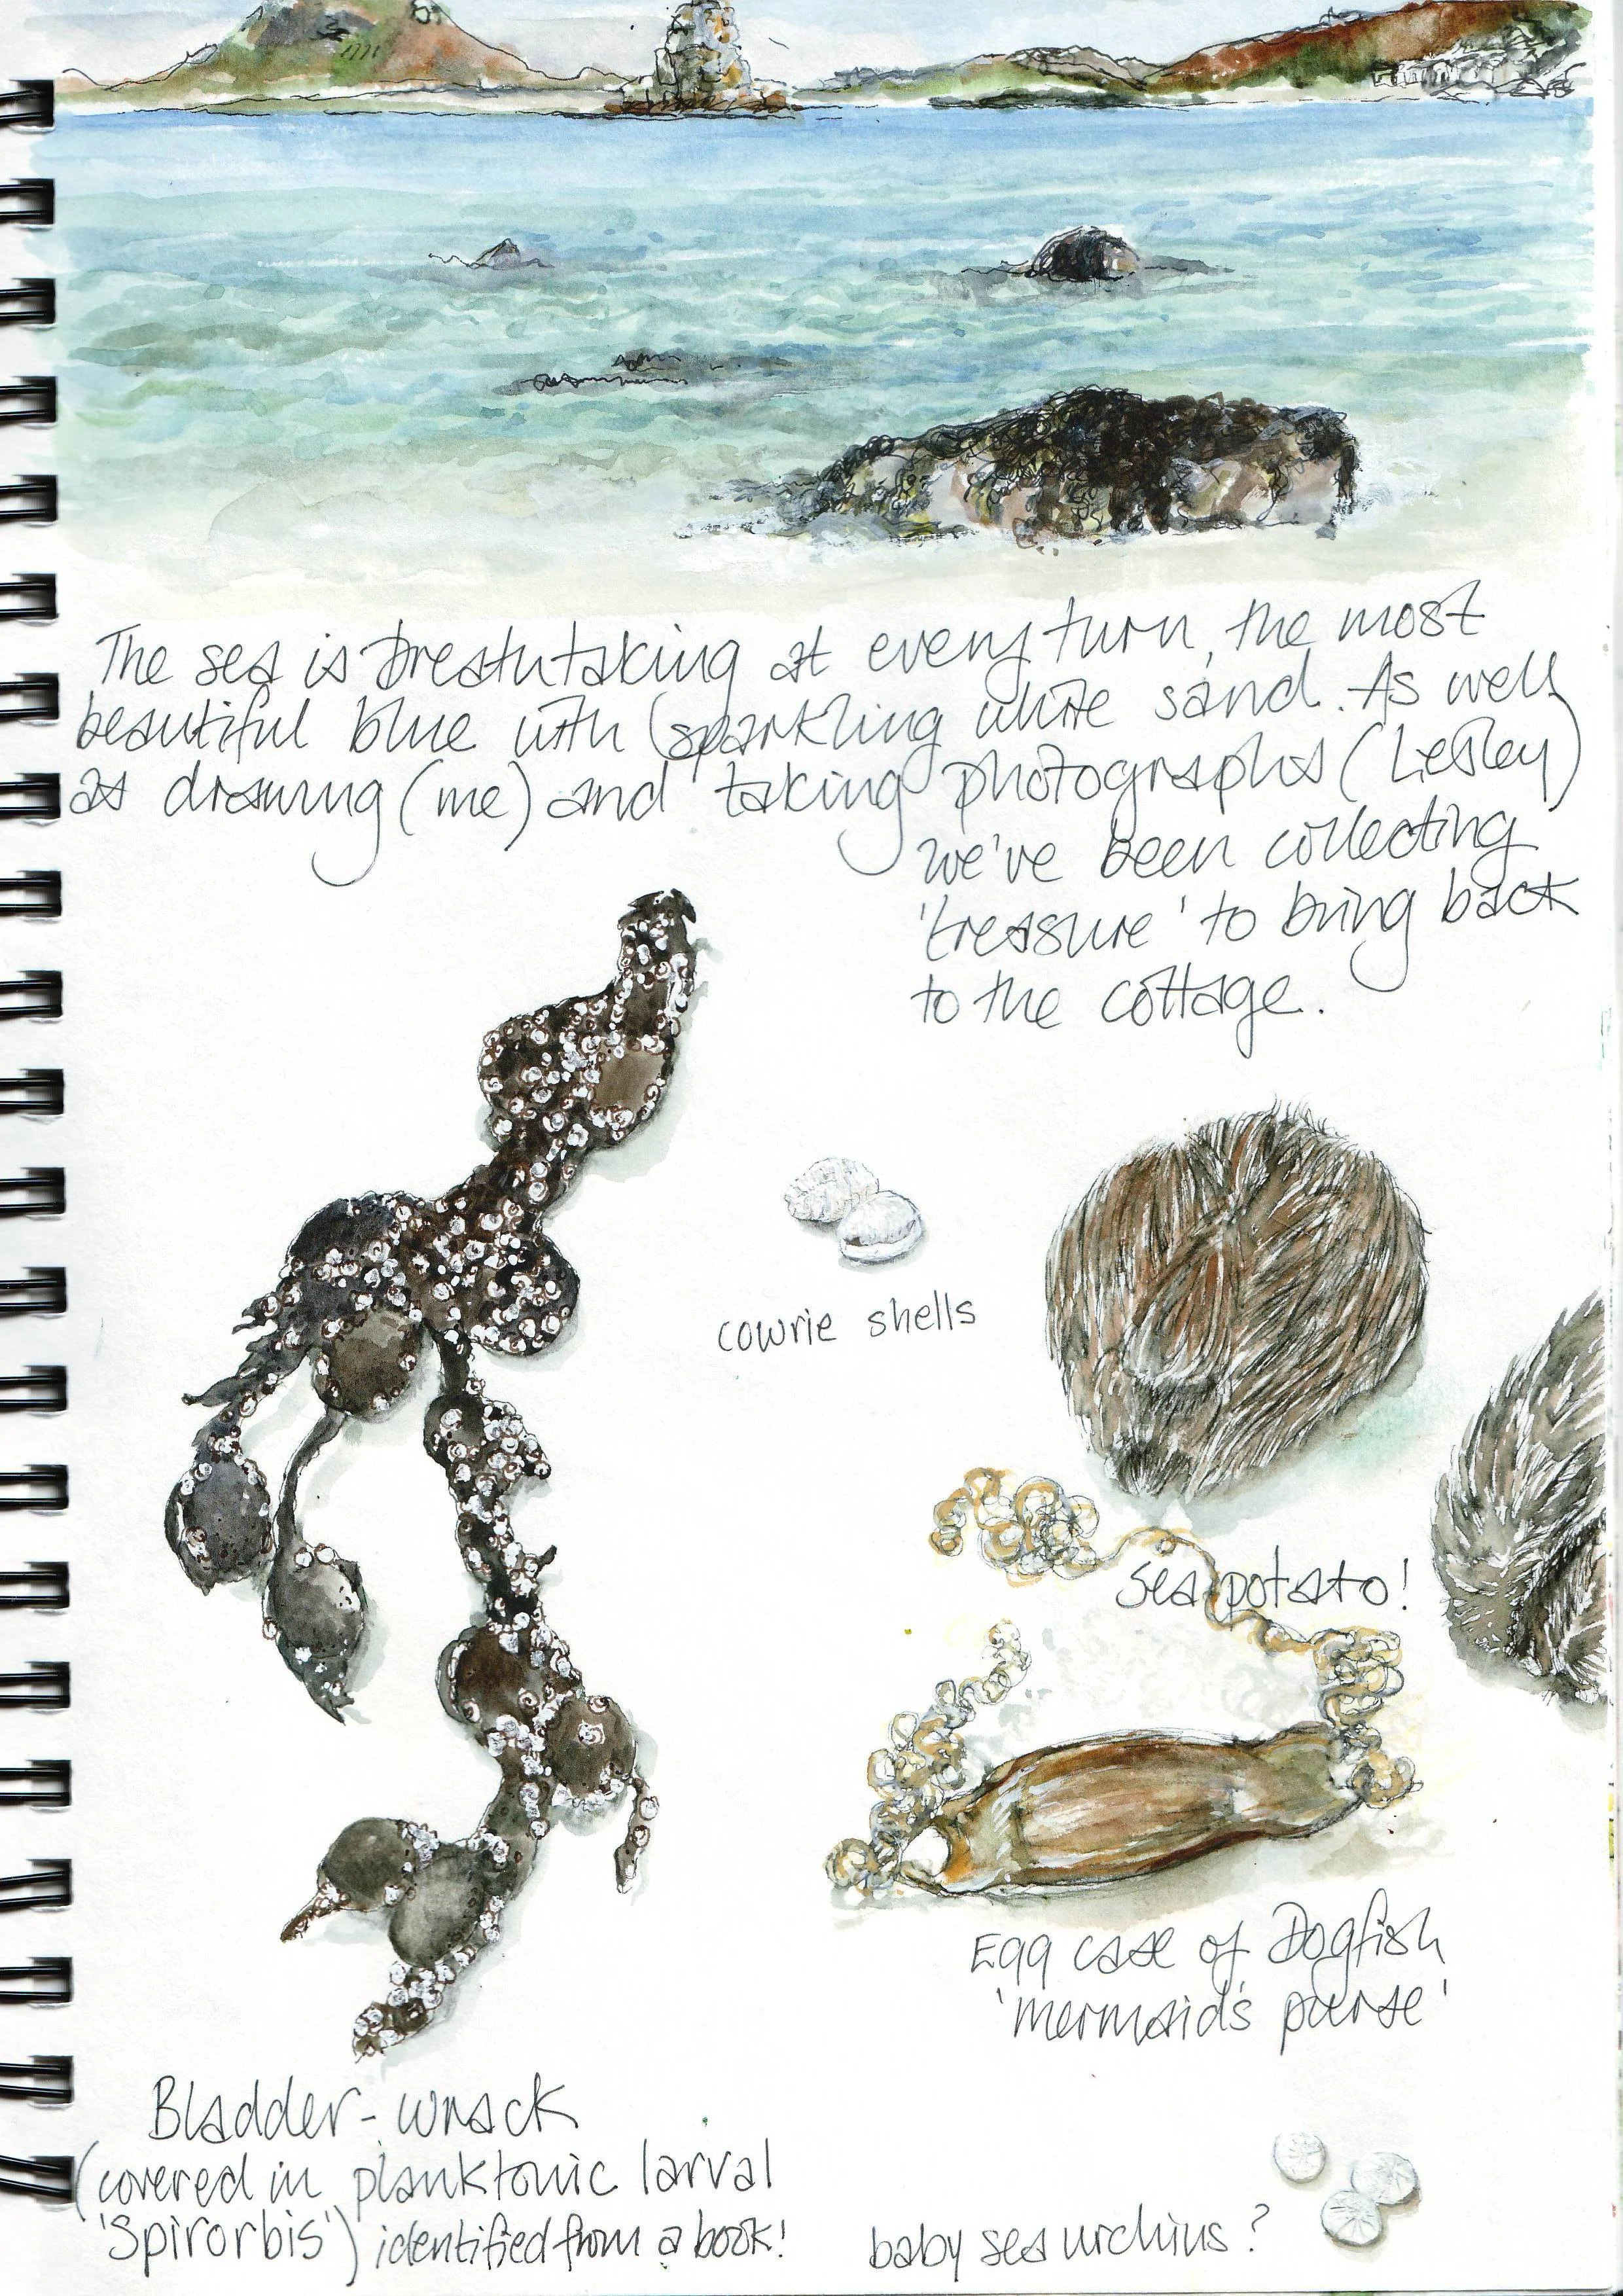 The sea is breathtaking at every turn, the most
beautiful blue with sparkling white sand. As well
as drawing (me) and taking photographs (Lesley)
we've been collecting
'treasure' to bring back
to the cottage.
cowrie shells
sea potato!
Egg case of Dogfish
'mermaid's purse'
Bladder-wrack
(covered in planktonic larval
'Spirorbis') identified from a book!
baby sea urchins?